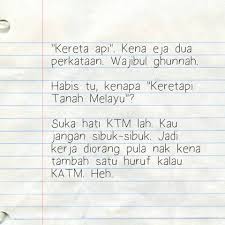 "Kereta api". Kena eja dua
perkataan. Wajibul ghunnah.
Habis tu, kenapa "Keretapi
Tanah Melayu"?
Suka hati KTM lah. Kau
jangan sibuk-sibuk. Jadi
kerja diorang pula nak kena
tambah satu huruf kalau
KATM. Heh.